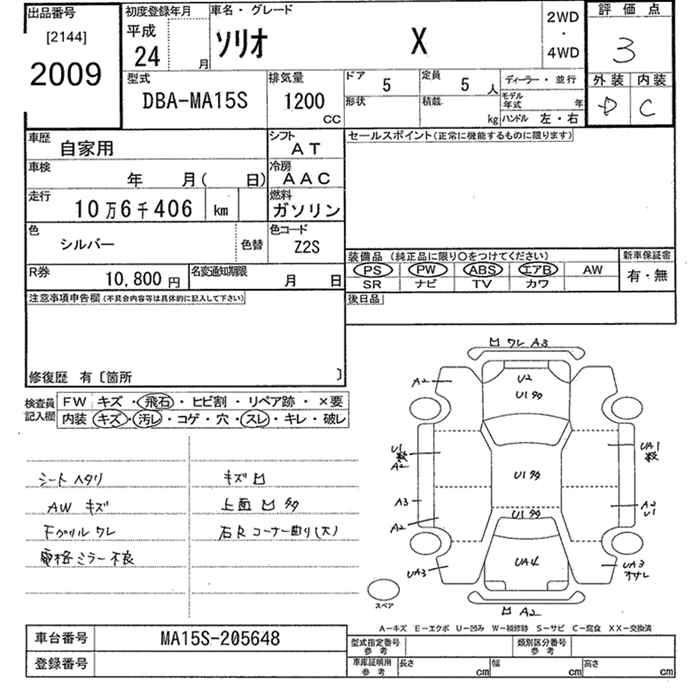 出品番号
[2144]
2009
初度登録年月
平成
24 月
車名・グレード
ソリオ X
2WD
・
4WD
評価点
3
外装 内装
D C
型式
DBA-MA15S
排気量
1200
CC
ドア
5
定員
5 人
形状
積載
kg
ディーラー・並行
モデル年式 年
ハンドル 左・右
車歴
自家用
シフト
AT
車検
年 月( 日)
冷房
AAC
走行
10万6千406 km
燃料
ガソリン
色
シルバー
色替
色コード
Z2S
R券
10,800 円
名変通知期限
月 日
セールスポイント(正常に機能するものに限ります)
装備品 (純正品に限り○をつけてください)
PS PW ABS エアB AW
SR ナビ TV カワ
新車保証書
有・無
後日品
注意事項申告欄(不具合内容等は具体的に記入して下さい)
修復歴 有〔箇所 〕
検査員
記入欄
FW キズ・飛石・ヒビ割・リペア跡・×要
内装 キズ・汚レ・コゲ・穴・スレ・キレ・破レ
シートヘタリ
AW キズ
Fグリル ワレ
電格ミラー不良
キズ凹
上面 凹 多
右R コーナー曲り(大)
凹 ワレ A3
A2
U2
U1多
U1
数
A2
U1多
UA1
数
A3
A2
A2
U1
U1多
UA4
UA3
UA3
オサレ
凹 A2
スペア
A-キズ E-エクボ U-凹み W-補修跡 S-サビ C-腐食 XX-交換済
車台番号
MA15S-205648
登録番号
型式指定番号
参考
類別区分番号
参考
車庫証明用
参考
長さ cm
幅 cm
高さ cm